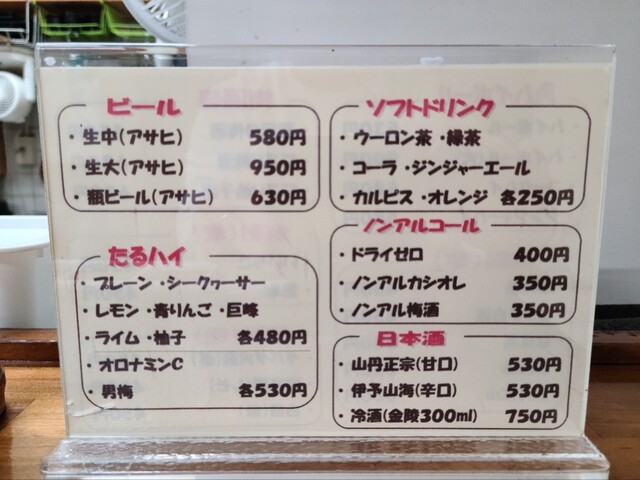 ビール
・生中(アサヒ) 580円
・生大(アサヒ) 950円
・瓶ビール(アサヒ) 630円
たるハイ
・プレーン ・シークヮーサー
・レモン ・青りんご ・巨峰
・ライム ・柚子 各480円
・オロナミンC
・男梅 各530円
ソフトドリンク
・ウーロン茶 ・緑茶
・コーラ ・ジンジャーエール
・カルピス ・オレンジ 各250円
ノンアルコール
・ドライゼロ 400円
・ノンアルカシオレ 350円
・ノンアル梅酒 350円
日本酒
・山丹正宗(甘口) 530円
・伊予山海(辛口) 530円
・冷酒(金陵300ml) 750円